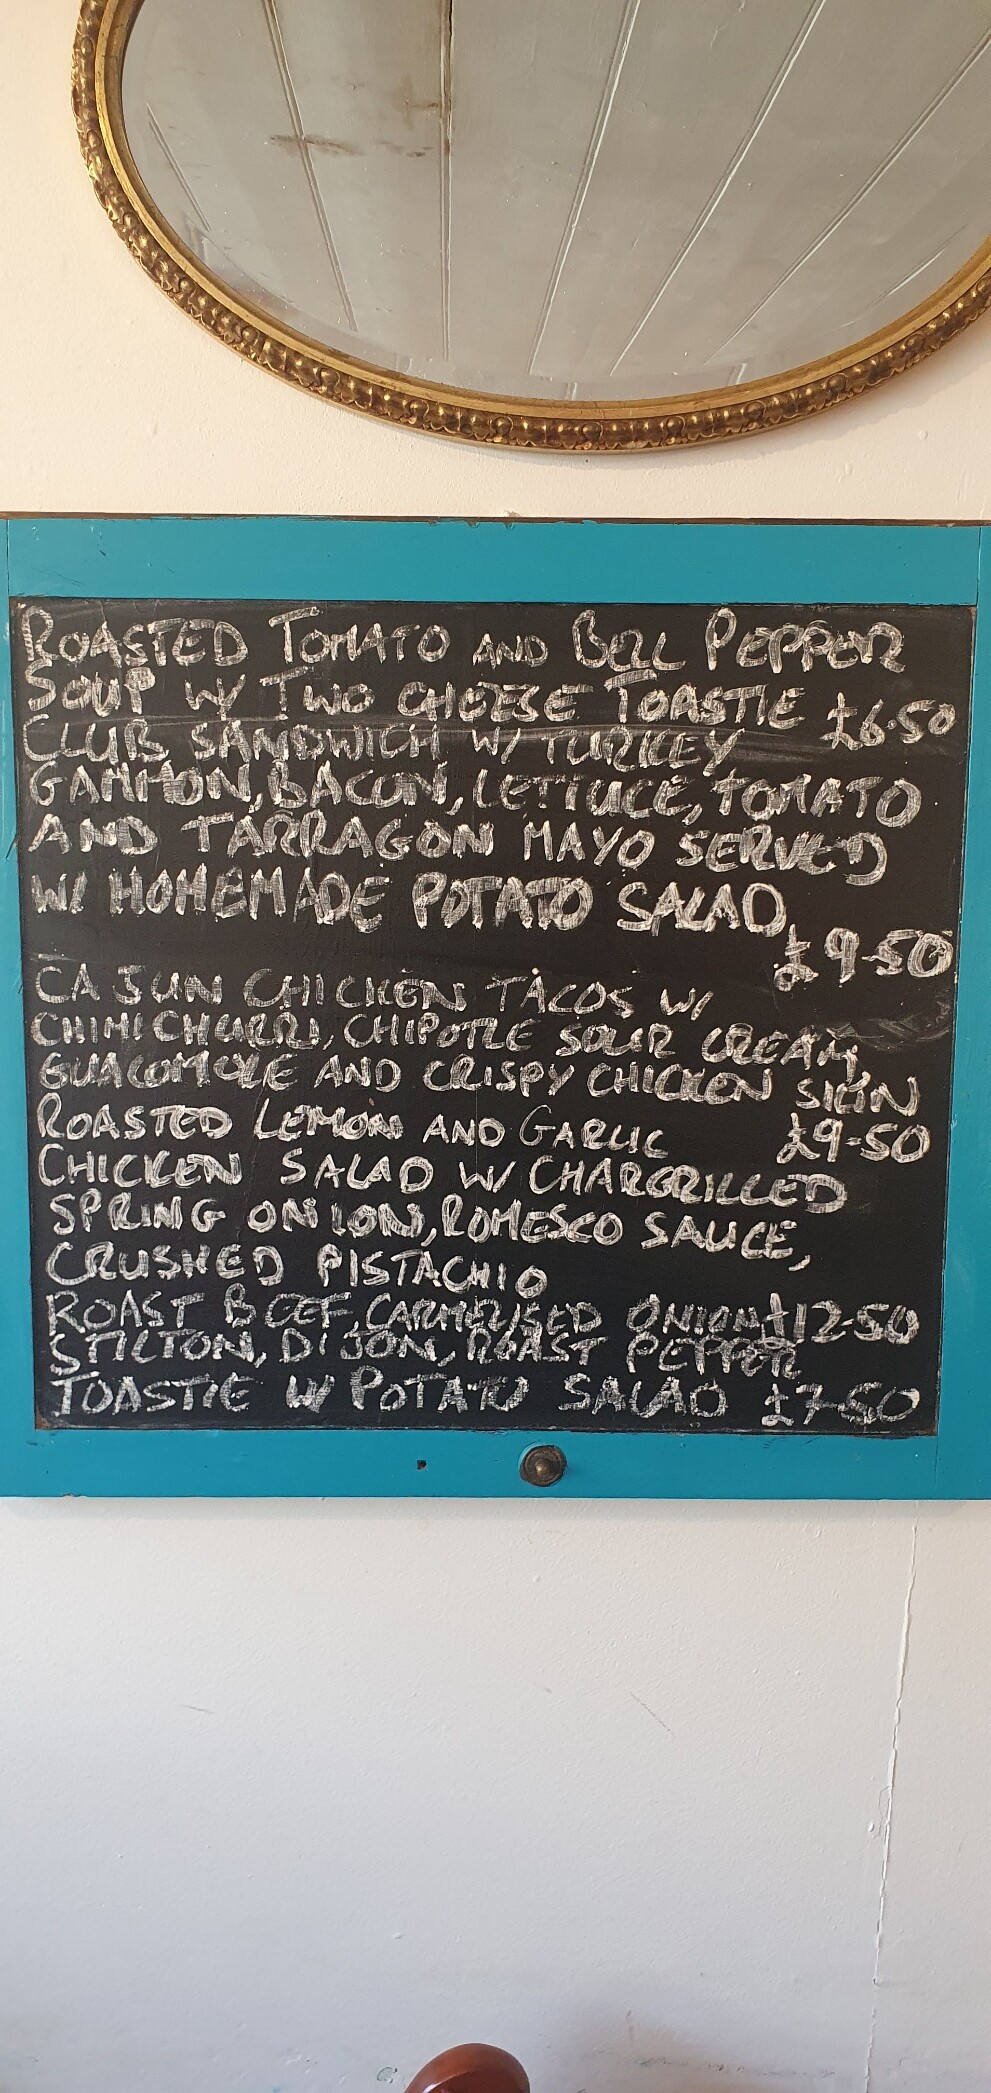 ROASTED TOMATO AND BELL PEPPER
SOUP W/ TWO CHEESE TOASTIE £6.50
CLUB SANDWICH W/ TURKEY
GAMMON, BACON, LETTUCE, TOMATO
AND TARRAGON MAYO SERVED
W/ HOMEMADE POTATO SALAD
£9.50
CAJUN CHICKEN TACOS W/
CHIMICHURRI, CHIPOTLE SOUR CREAM,
GUACOMOLE AND CRISPY CHICKEN SKIN
ROASTED LEMON AND GARLIC £9.50
CHICKEN SALAD W/ CHARGRILLED
SPRING ONION, ROMESCO SAUCE,
CRUSHED PISTACHIO
ROAST BEEF, CARMELISED ONION £12.50
STILTON, DIJON, ROAST PEPPER
TOASTIE W/ POTATO SALAD £7.50